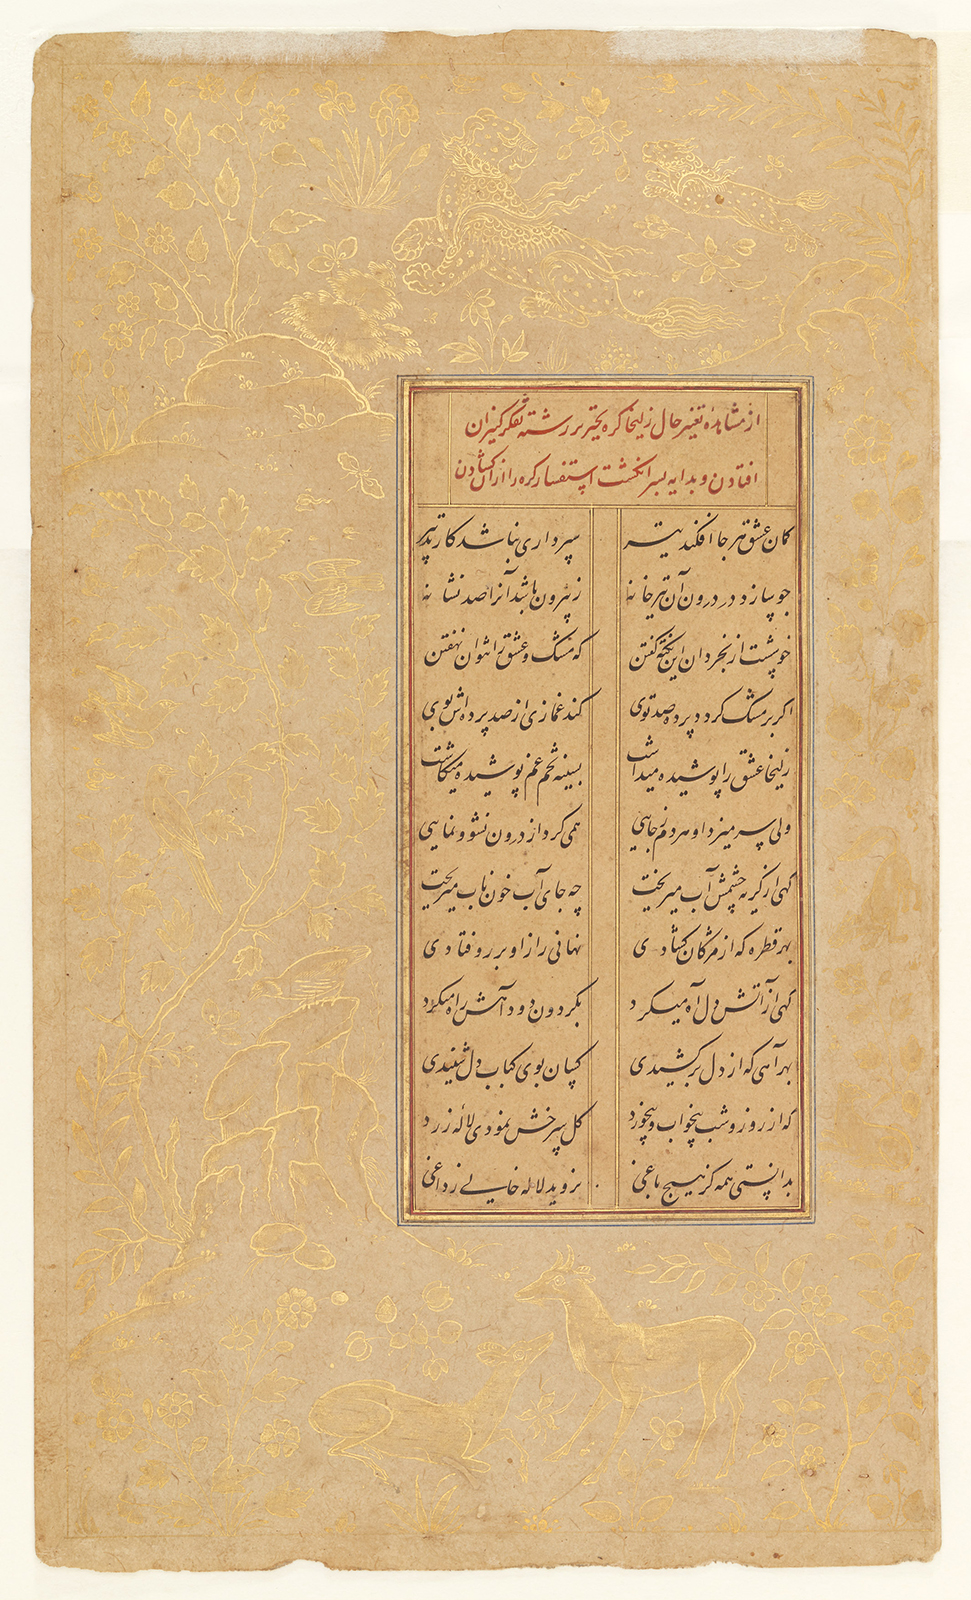 از مشاهدهٔ تغییر حال زلیخا گره تحیر بر رشته تفکر کنیزان
افتادن و بدایه بسر انگشت استفسار گره را از آن کشادن
کمان عشق هر جا افکند تیر سپرداری نباشد کار تدبیر
چو سازد در درون آن تیر خانه ز بیرون باشد آنرا صد نشانه
خوشست از بخردان این نکته گفتن که مشک و عشق را نتوان نهفتن
اگر بر مشک گردد پرده صد توی کند غمازی از صد پرده اش بوی
زلیخا عشق را پوشیده میداشت بسینه تخم غم پوشیده میکاشت
ولی سر میزد او هر دم ز جایی همی کرد از درون نشو و نمایی
گهی از گریه چشمش آب میریخت چه جای آب خون ناب میریخت
بهر قطره که از مژگان گشادی نهانی راز او بر رو فتادی
گهی از آتش دل آه میکرد بگردون دود آهش راه میکرد
بهر آهی که از دل برکشیدی کسان بوی کباب دل شنیدی
که از روز و شب بیخواب و بیخورد گل سرخش نمودی لاله زرد
بدانستی همه کز هیچ باغی نروید لاله خالی ز داغی